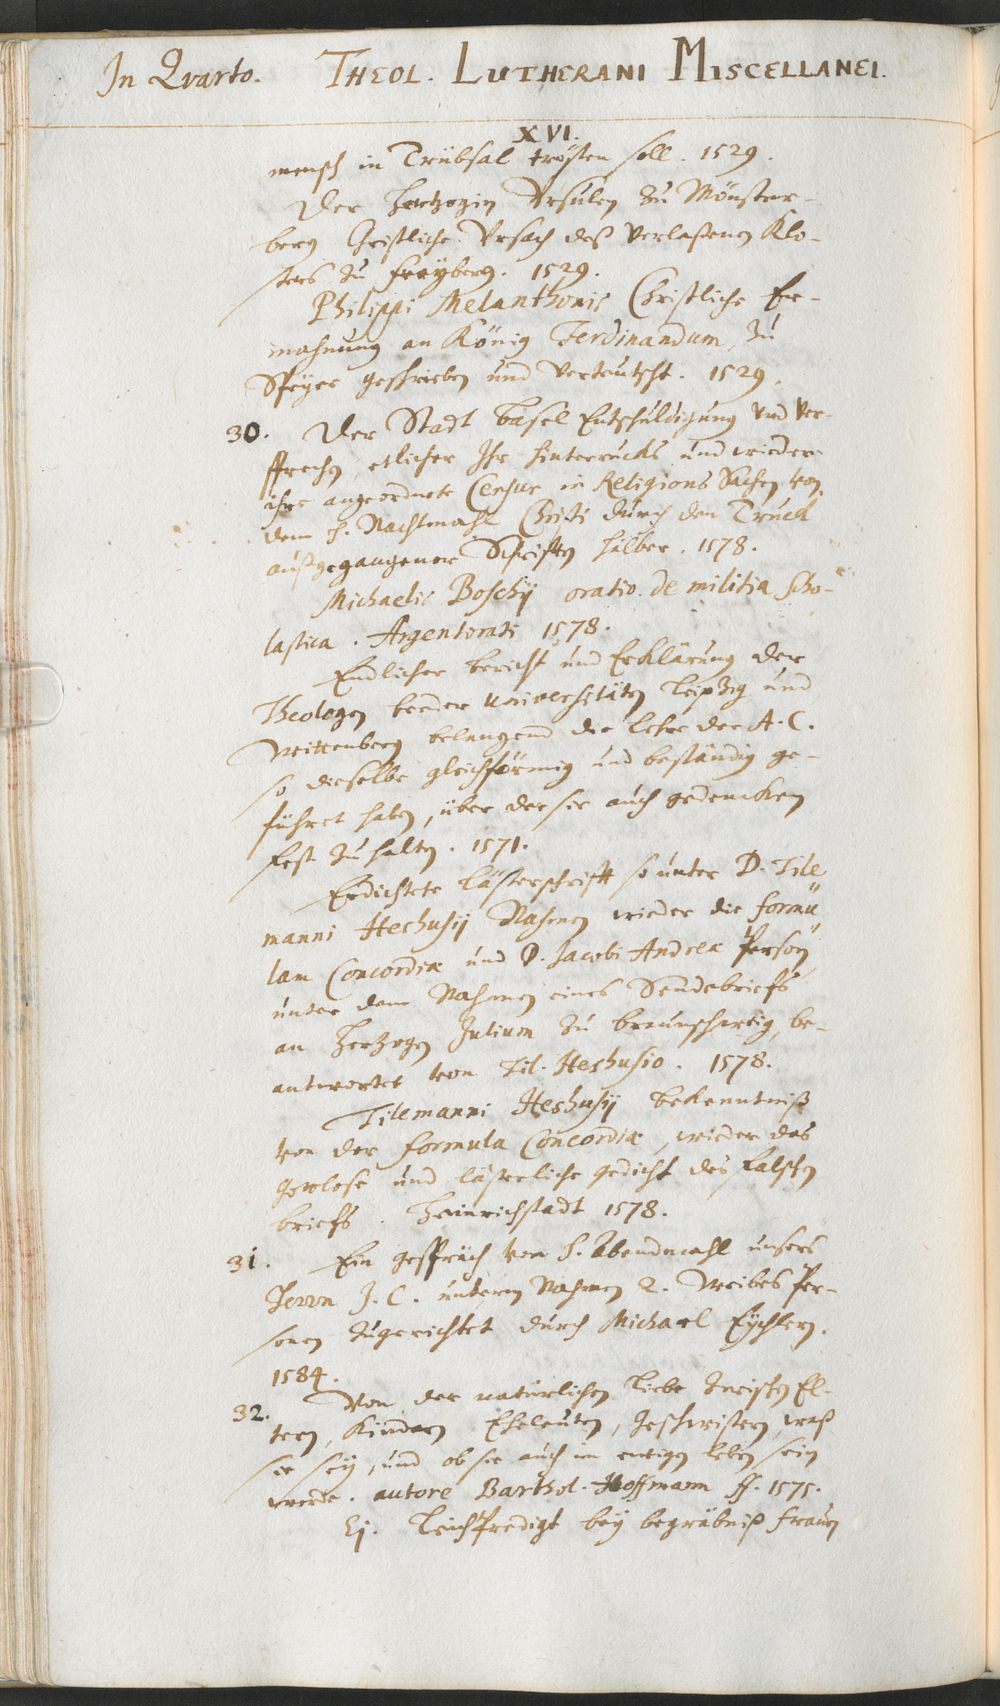 In Qvarto. THEOL. LUTHERANI MISCELLANEI.
XVI.
mensch in Trübsal trösten soll. 1529.
Der Hertzogin Ursulen zu Mönster-
berg Christliche Ursach deß verlaßenen Klo-
sters zu freyberg. 1529.
Philippi Melanthonis Christliche Er-
mahnung an König Ferdinandum, zu
Speyer geschrieben und verteutscht. 1529.
30. Der Stadt Basel Entschuldigung und ver-
sprechen, etlicher Ihr hinterrucks und wieder
ihre angeordnete Censur in Religions Sachen von
dem H. Nachtmahl Christi durch den Truck
außgegangener Schrifften halber. 1578.
Michaelis Boschij oratio de militia scho-
lastica. Argentorati 1578.
Endlicher bericht und Erklärung der
Theologen beeder Universitäten Leipzig und
Wittenberg belangend die Lehre der A. C.
so dieselbe gleichförmig und beständig ge-
führet haben, über der sie auch gedencken
fest zu halten. 1571.
Erdichtete Lästerschrifft so unter D. Tile
manni Heshusij Nahmen wieder die formu
lam Concordiæ und D. Jacobi Andreæ Person
unter dem Nahmen eines Sendebriefs
an Hertzogen Julium zu braunschweig, be-
antwortet von Til. Heshusio. 1578.
Tilemanni Heshusij bekenntniß
von der formula Concordiæ, wieder das
Gottlose und lästerliche gedicht des falschen
briefs. Heinrichstadt 1578.
31. Ein gespräch von H. Abendmahl unsers
Herrn J. C. unterm Nahmen 2. Weibes Per-
sonen zugerichtet durch Michael Eychlern.
1584.
32. Von der natürlichen Liebe zwischen El-
tern, Kindern Eheleuten, Geschwistern, waß
sie sey, und ob sie auch im ewigen leben sein
werde. autore Barthol. Hoffmann ff. 1575.
Ej. Leichpredigt bey begräbniß frauen